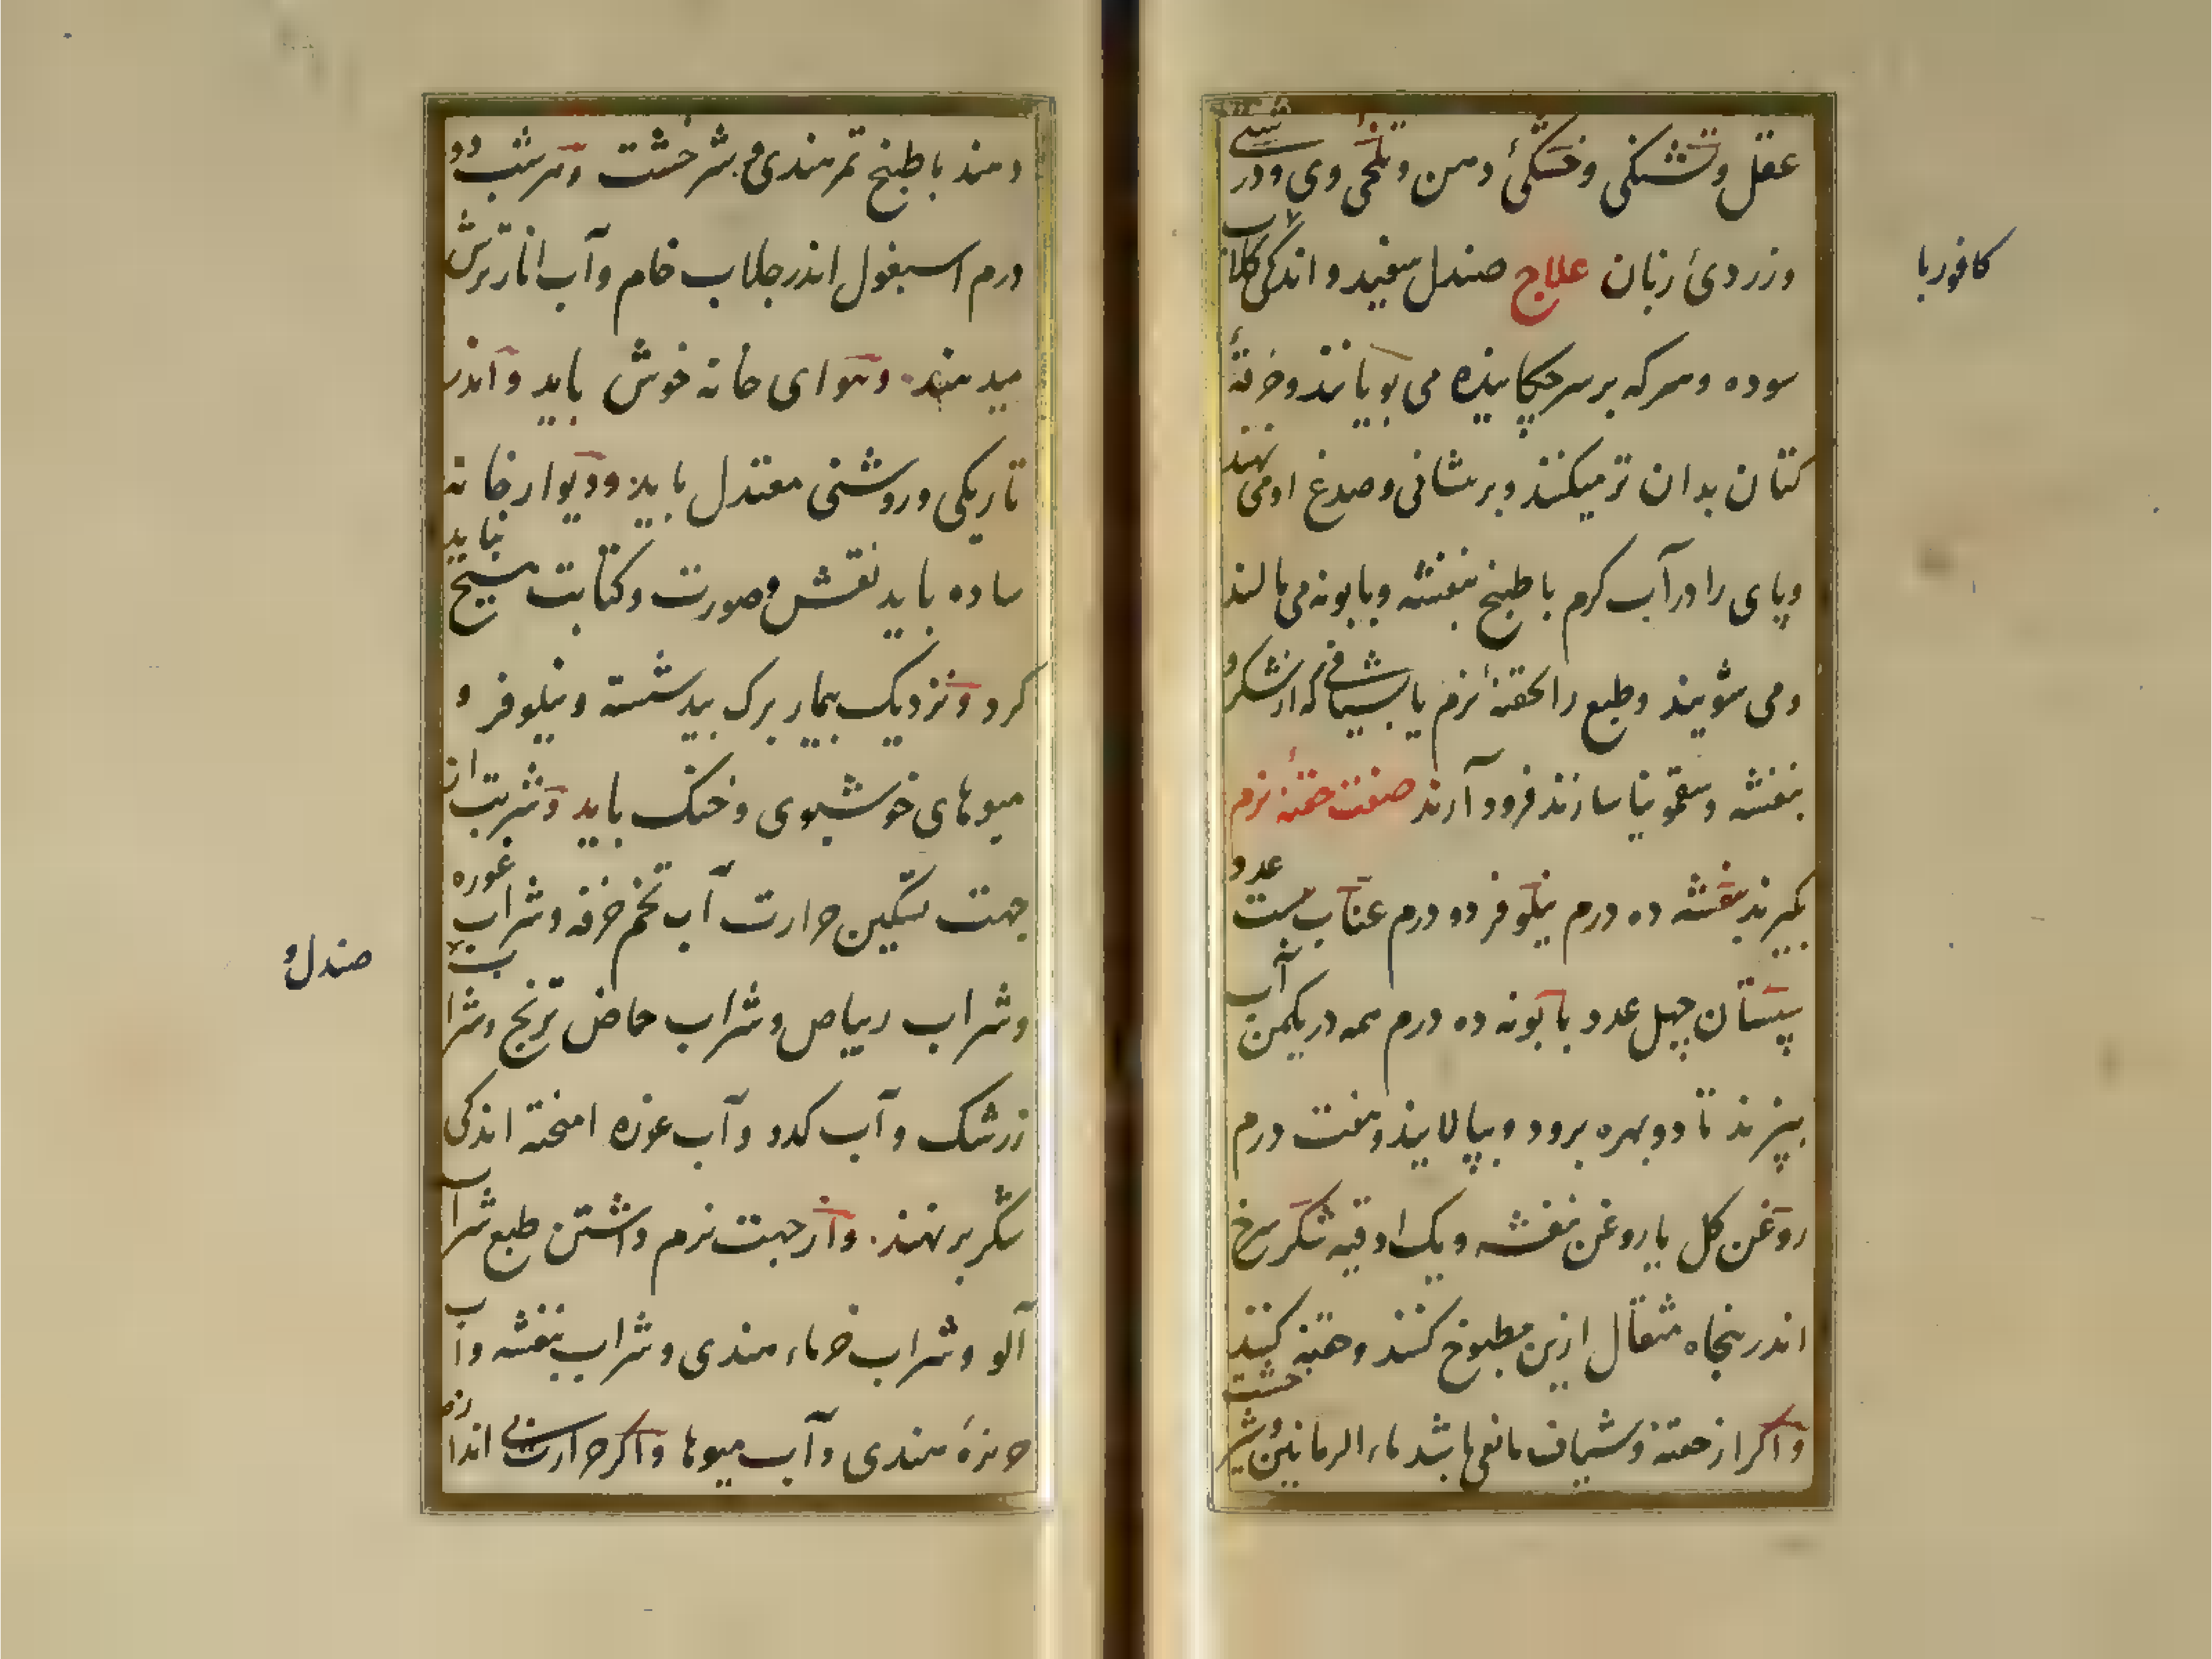 عقل و تشنکی و خشکئ دهن و تلخی وی و درشتی
و زردئ زبان علاج صندل سفید و اندکی کلاب
سوده و سرکه برسر چکانیذه می بویانند و خرقهٔ
کتان بدان تر میکنند و بر پیشانی و صدغ او می نهند
و پای را در آب کرم با طبیخ بنفشه و بابونه می مالند
و می شویند و طبع را بحقنهٔ نرم یا بشیافی که از شکر و
بنفشه و سقمونیا سازند فرود آرند صفت حقنهٔ نرم
بکیرند بنفشه ده درم نیلوفر دو درم عناب بیست عدد
سپستان چهل عدد بابونه ده درم همه در یکمن آب
بپزند تا دو بهره برود و بپالایند و هفت درم
روغن کل یا روغن بنفشه و یک اوقیه شکر سرخ
اندر پنجاه مثقال ازین مطبوخ کنند و حقنه کنند
و اکر از حقنه و شیاف مانعی باشد ماء الرمانین و شیر خشت
کافور با
دهند با طبیخ تمر هندی و شیر خشت و هر شب دو
درم اسبغول اندر جلاب خام و آب انار ترش
میدهند. و هوای خانه خوش باید و اندر
تاریکی و روشنی معتدل باید و دیوار خانه
ساده باید نقش و صورت و کتابت هیچ نباید
کرد و نزدیک بیمار برک بید شسته و نیلوفر و
میوهای خوشبوی و خنک باید و شربت از
جهت تسکین حرارت آب تخم خرفه و شراب غوره
و شراب ریباص و شراب حماض ترنج و شراب
زرشک و آب کدو و آب غوره امیخته اندکی
شکر بر نهند. و از جهت نرم داشتن طبع شراب
آلو و شراب خرماء هندی و شراب بنفشه و آب
خربزهٔ هندی و آب میوها و اکر حرارت بی اندازه
صندل و